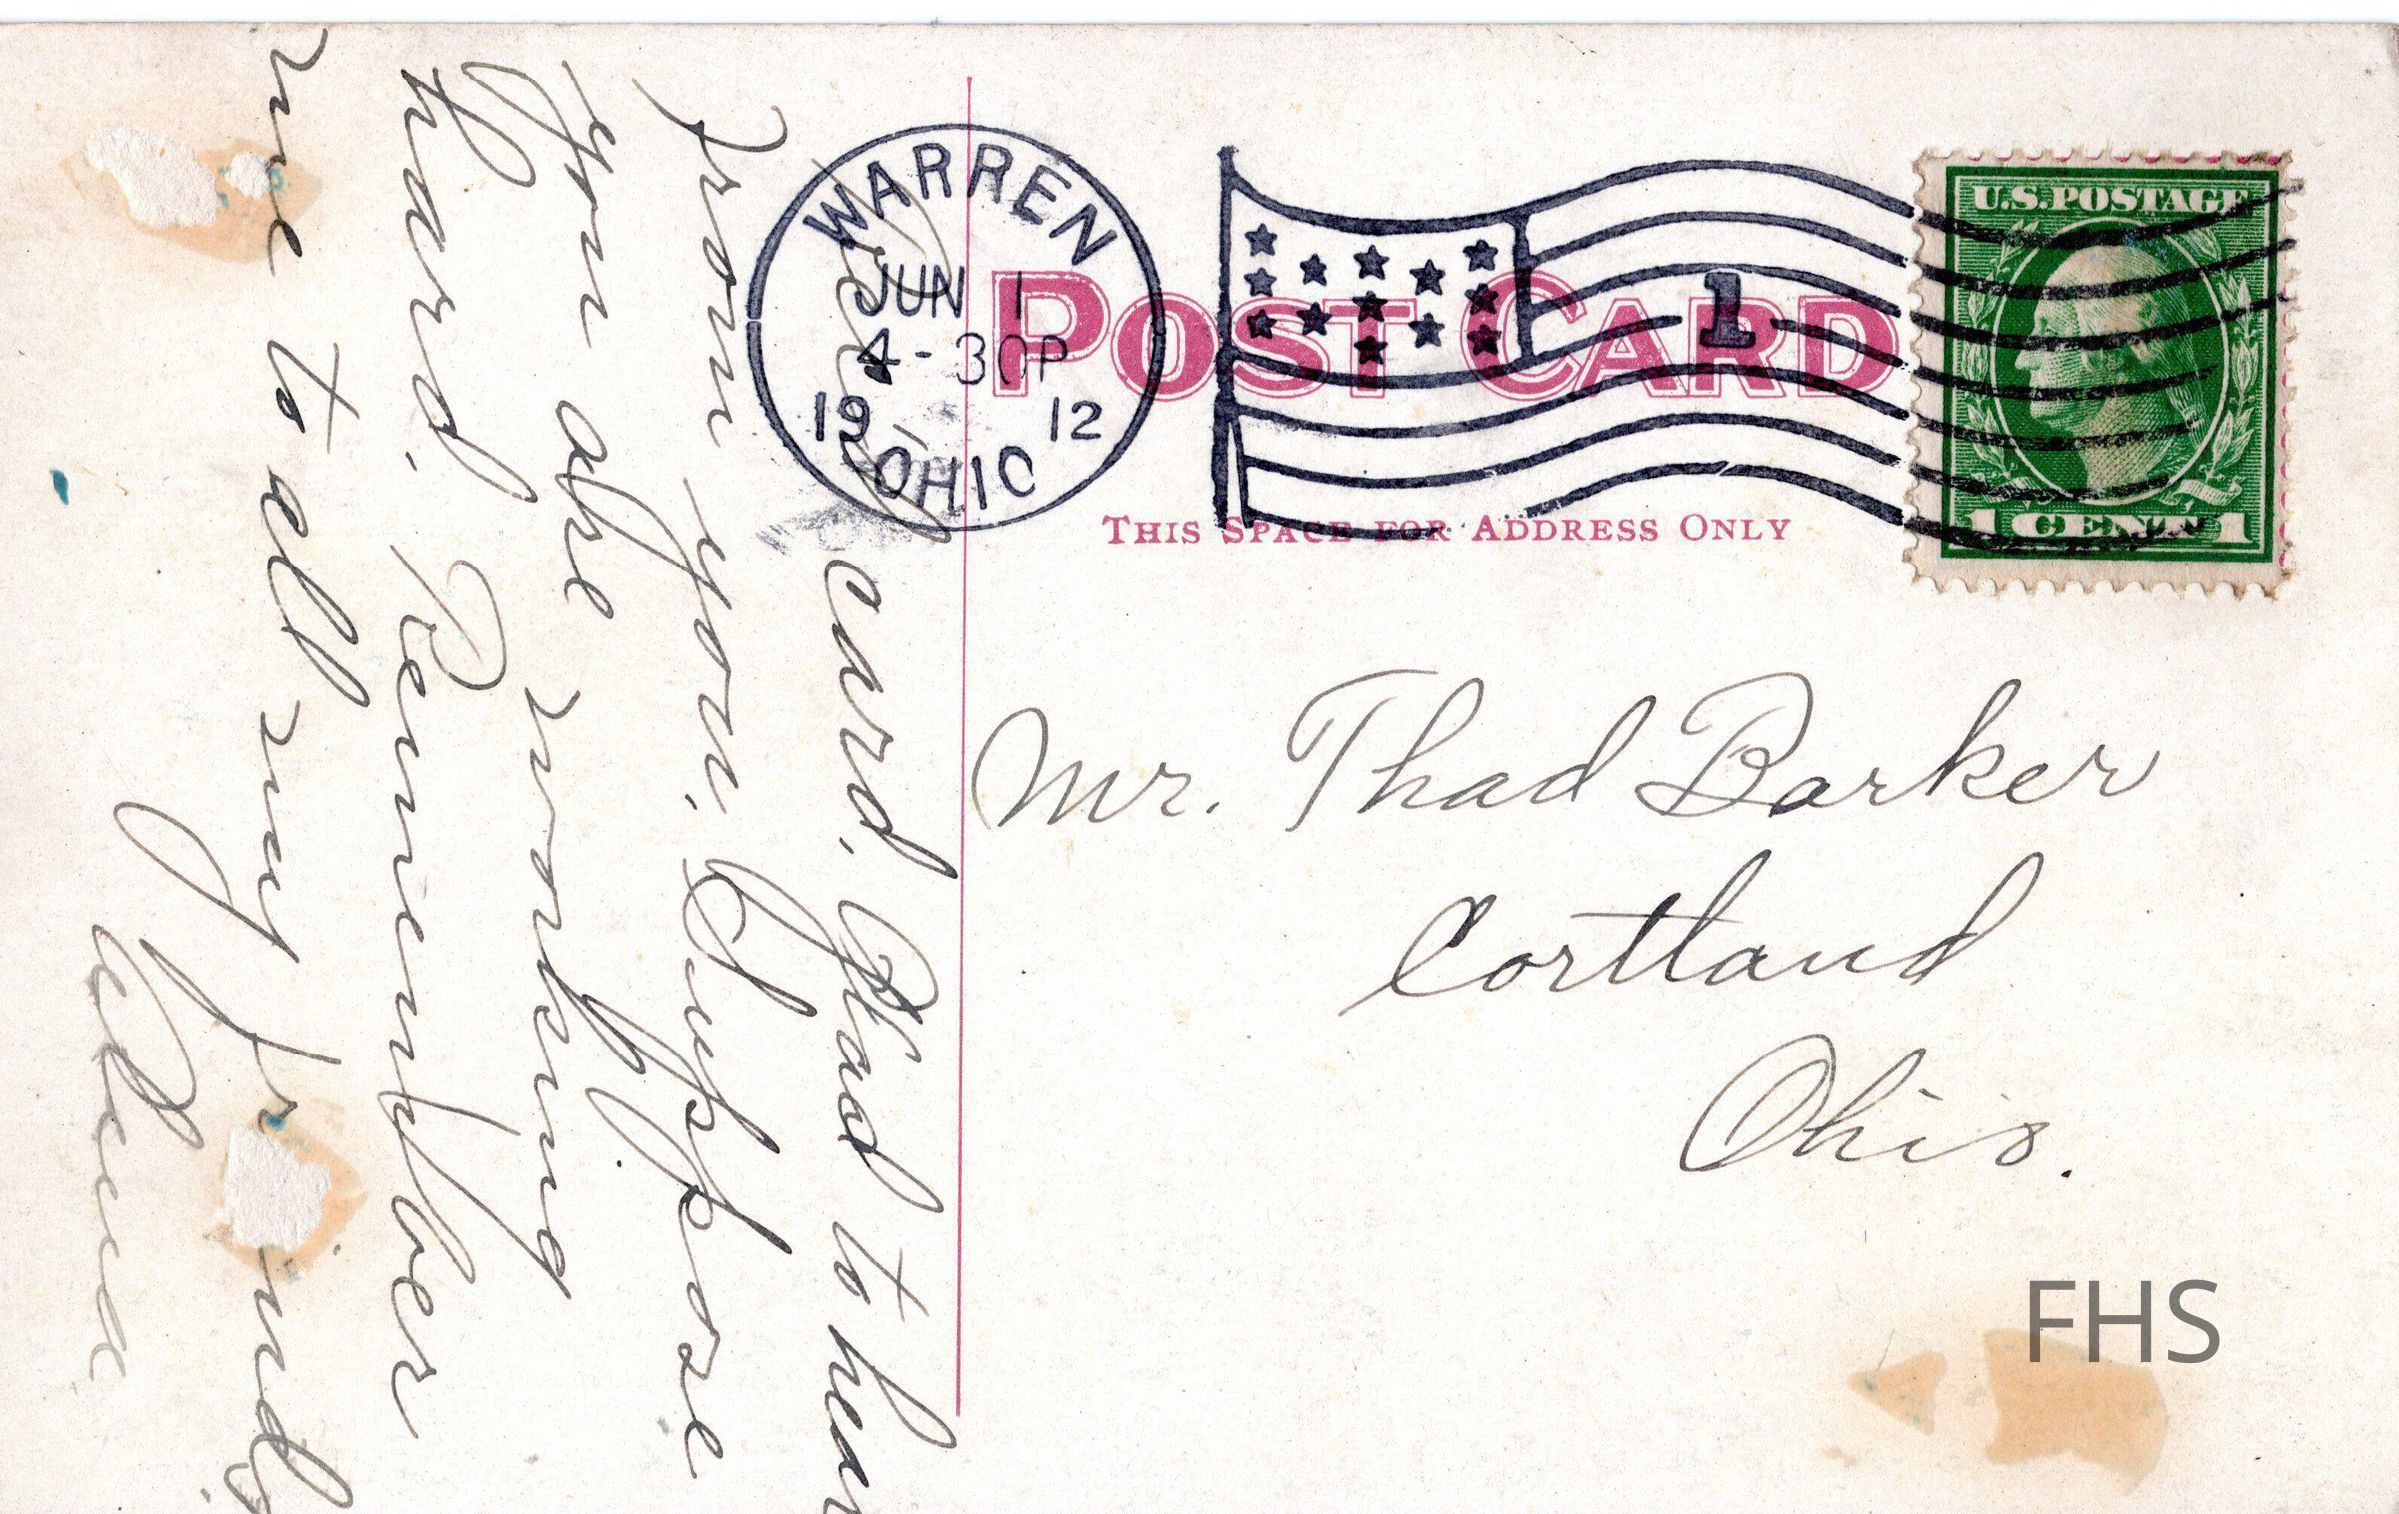 WARREN
JUN 1
4-30P
1912
OHIO
1
U.S. POSTAGE
1 CENT 1
POST CARD
THIS SPACE FOR ADDRESS ONLY
Mr. Thad Barker
Cortland
Ohio.
Rec'd card. Glad to hear
from you. Suppose
you are working
hard. Remember
me to all my friends
FHS